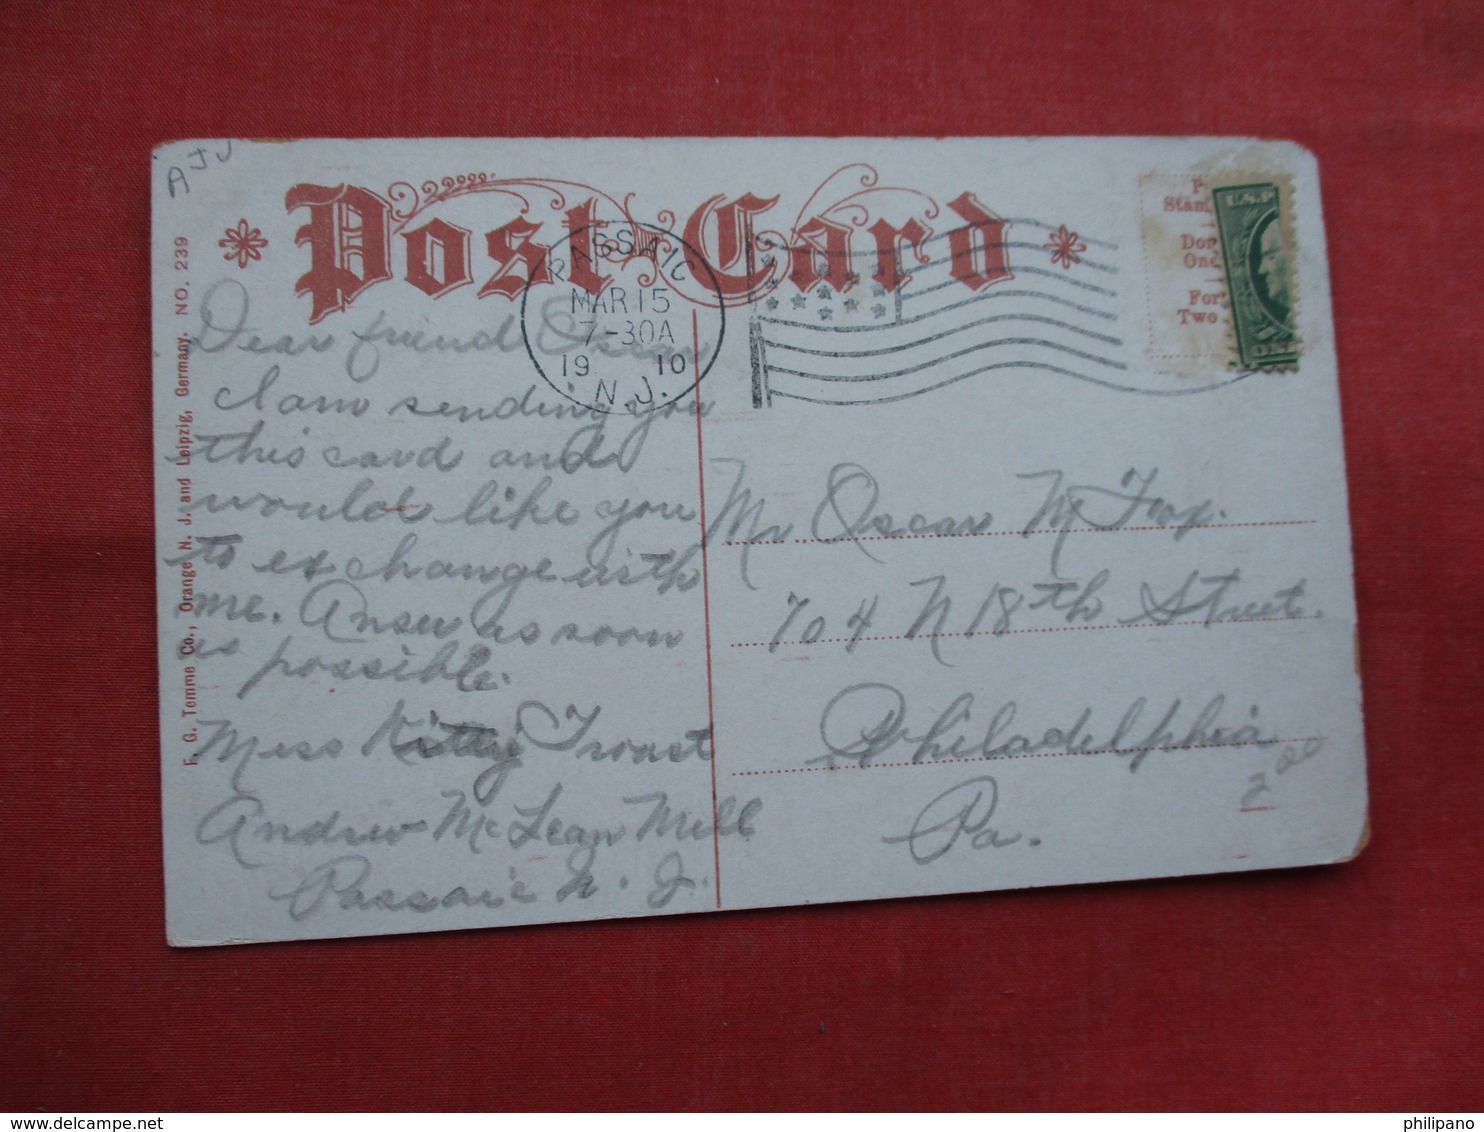 AJJ
Post Card
PASSAIC
MAR 15
7-30A
19 10
N.J.
P
Stam
Don
One
For
Two
U.S.P
F. G. Temme Co., Orange N. J. and Leipzig, Germany. NO. 239
Dear friend Oscar
I am sending you
this card and
would like you
to ex change with
me. Answ as soon
as possible.
Miss Kitty
Andrew McLean Mill
Passaic N. J.
Mr Oscar M Fox.
704 N 18th Street.
Philadelphia
Pa.
2 00
philipano
delcampe.net